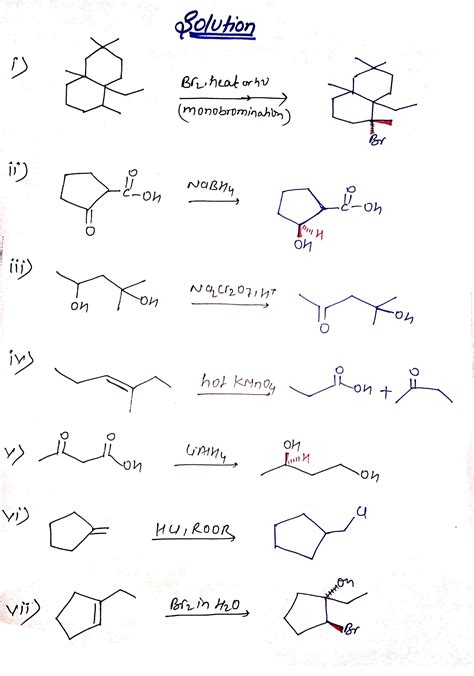 Solution
i) Br2, heat or hν
(monobromination)
Br
ii) O
C-OH
O
NaBH4
O
C-OH
H
OH
iii) OH OH
Na2Cr2O7, H+
O OH
iv) hot KMnO4
O
OH + O
v) O O
OH
LiAlH4
OH
H
OH
vi) HCl, ROOR
Cl
vii) Br2 in H2O
OH
Br